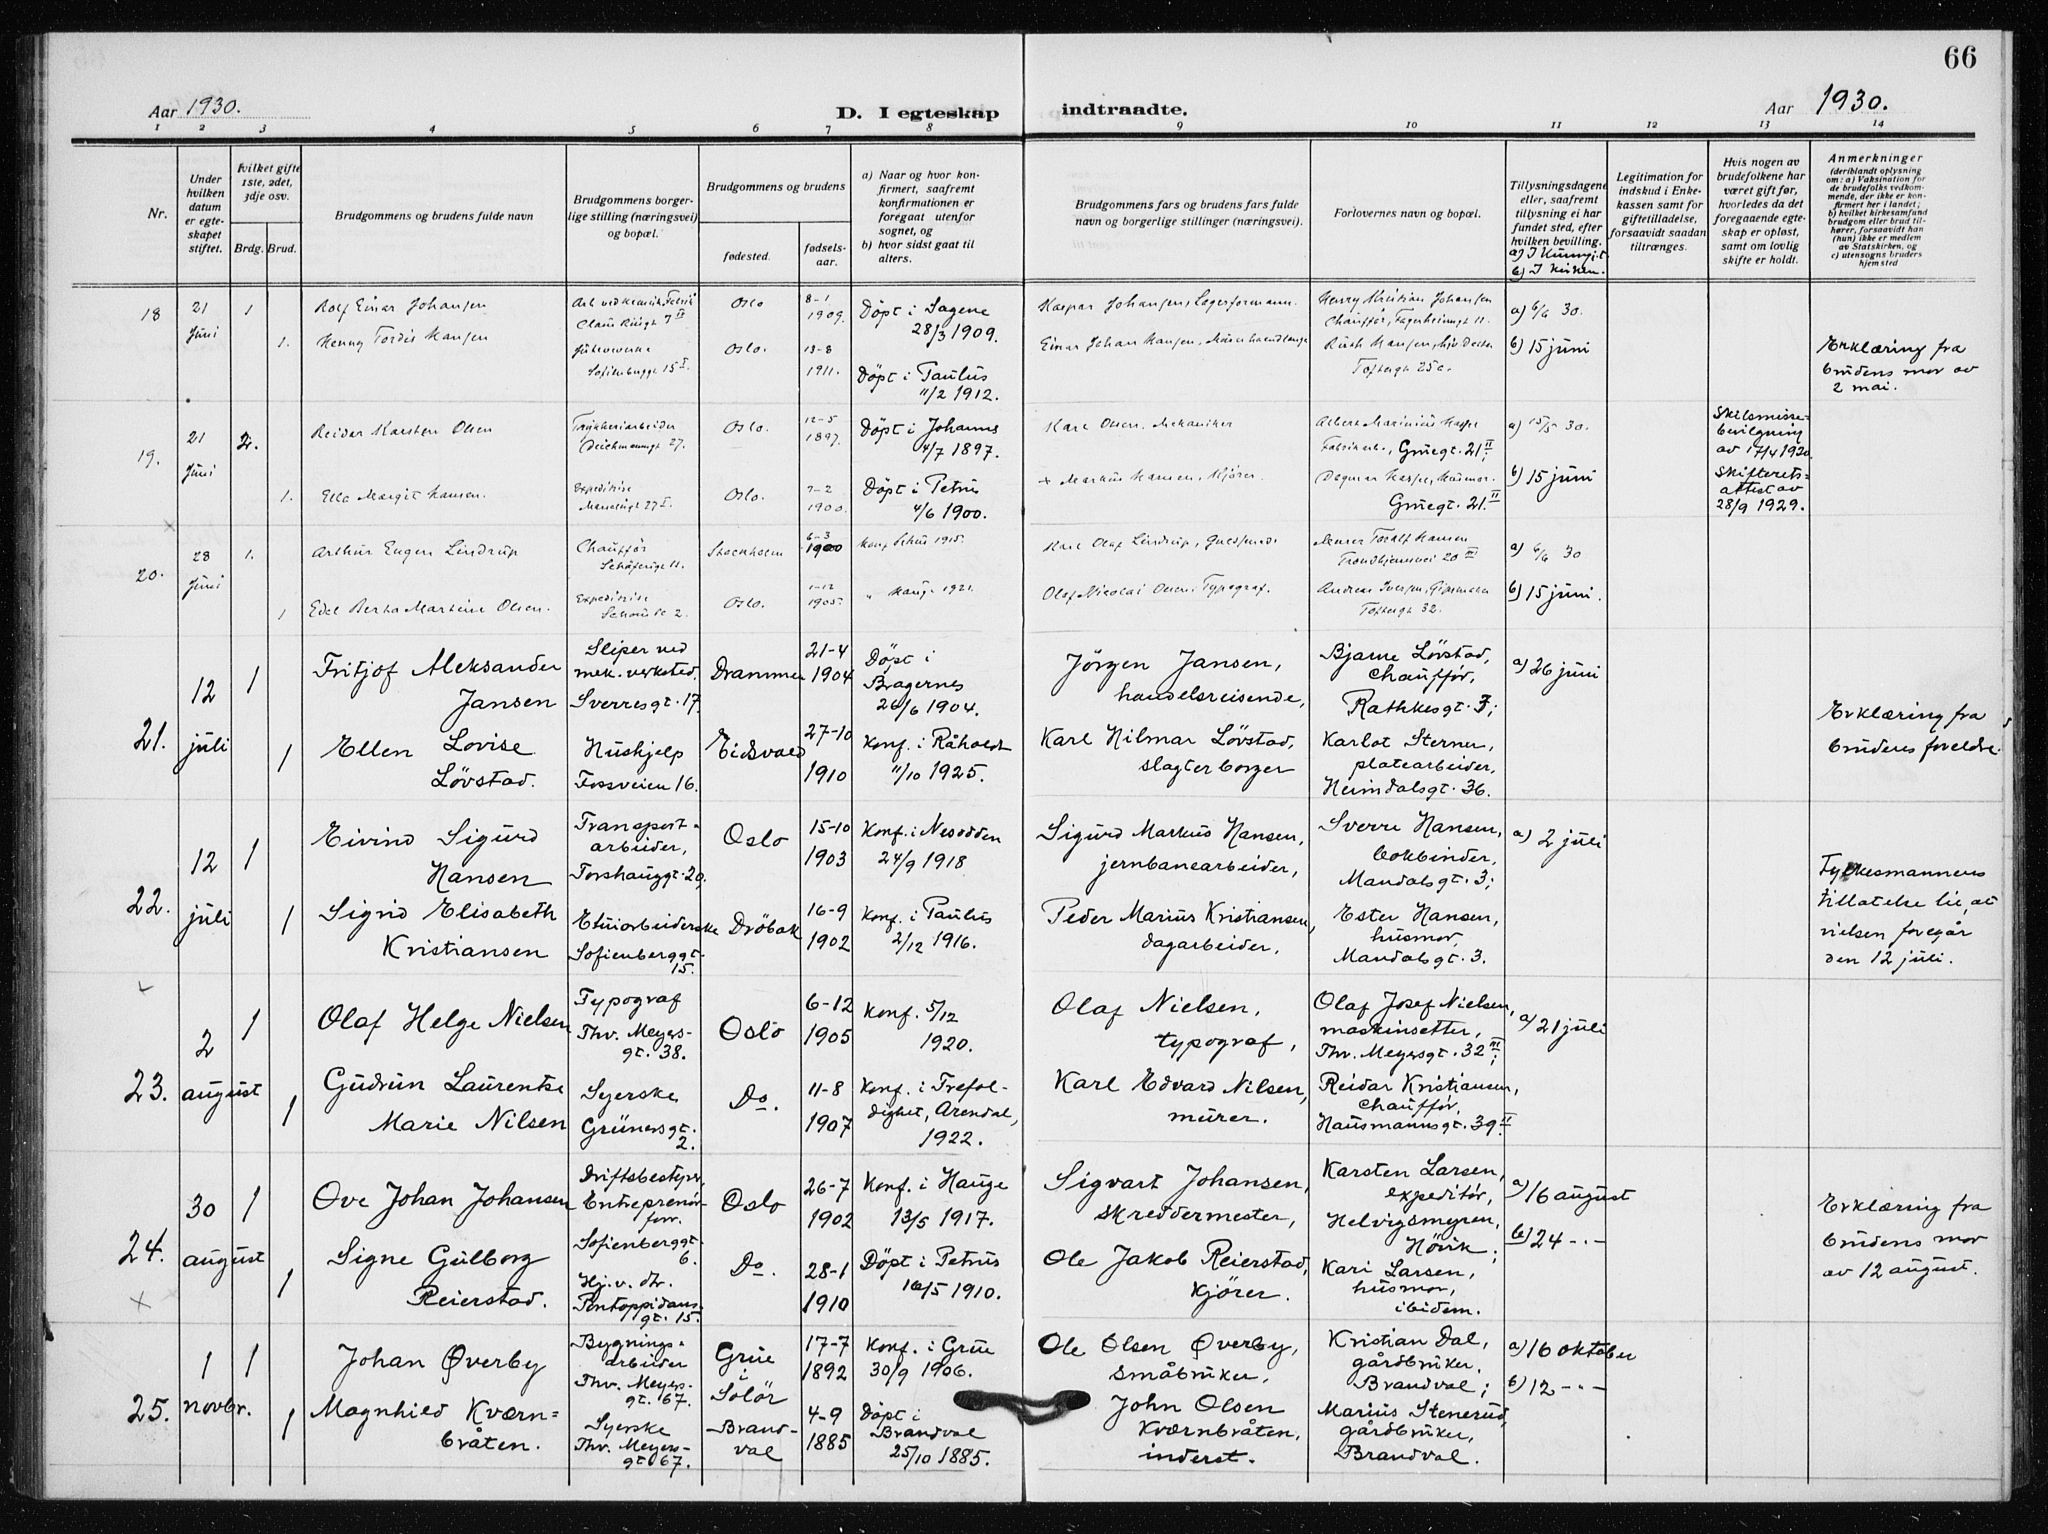 66
Aar 1930.
D. I egteskap indtraadte.
Aar 1930.
1 2 3 4 5 6 7 8 9 10 11 12 13 14
Nr.
Under
hvilken
datum
er egte-
skapet
stiftet.
hvilket gifte
1ste, 2det,
3dje osv.
Brdg. Brud.
Brudgommens og brudens fulde navn
Brudgommens borger-
lige stilling (næringsvei)
og bopæl.
Brudgommens og brudens
fødested.
fødsels-
aar.
a) Naar og hvor kon-
firmert, saafremt
konfirmationen er
foregaat utenfor
sognet, og
b) hvor sidst gaat til
alters.
Brudgommens fars og brudens fars fulde
navn og borgerlige stillinger (næringsvei).
Forlovernes navn og bopæl.
Tillysningsdagene
eller, saafremt
tillysning ei har
fundet sted, efter
hvilken bevilling.
a) I Kunngj.t.
b) I kirken.
Legitimation for
indskud i Enke-
kassen samt for
giftetilladelse,
forsaavidt saadan
tiltrænges.
Hvis nogen av
brudefolkene har
været gift før,
hvorledes da det
foregaaende egte-
skap er opløst,
samt om lovlig
skifte er holdt.
Anmerkninger
(deriblandt oplysning
om: a) Vaksination for
de brudefolks vedkom-
mende, der ikke er kon-
firmert her i landet;
b) hvilket kirkesamfund
brudgom eller brud til-
hører, forsaavidt han
(hun) ikke er medlem
av Statskirken, og
c) utensogns bruders
hjemsted
18
21
Juni
1
Rolf Einar Johansen
Claus Riisgt 7 II
Oslo
8-1
1909.
Døpt i Sagene
28/3 1909.
Kaspar Johansen, Lagerformann.
Henry Kristian Johansen
Chauffør, Fagerheimgt 11.
a) 6/6 30.
1.
Henny Tordis Hansen
Sofienberggt 15 I.
Oslo.
13-8
1911.
Døpt i Paulus
11/2 1912.
Einar Johan Hansen,
Ruth Hansen,
Toftesgt 25a.
b) 15 juni
Erklæring fra
brudens mor av
2 mai.
19.
21
Juni
2.
Reidar Karsten Olsen
Trykkeriarbeider
Deichmannsgt 27.
Oslo.
12-5
1897.
Døpt i Johannes
4/7 1897.
Karl Olsen, Mekaniker
Albert Marinius Kaspe
Fabrikarb., Grüegt. 21 II;
a) 15/5 30.
Skilsmisse-
bevilgning
av 17/4 1920
Skifterets-
attest av
28/9 1929.
1.
Ella Margit Hansen.
Expeditrise
Oslo.
7-2
1900.
Døpt i Petrus
4/6 1900.
+ Markus Hansen, Kjører.
Dagmar Kaspe, Husmor.
Grüegt. 21. II
b) 15 juni
20.
28
Juni
1.
Arthur Eugen Lindrup
Chauffør
Schäfersgt 11.
Stockholm
6-3
1900
Konf 1915.
Karl Olaf Lindrup,
Murer Toralf Hansen
Trondhjemsvei 20 III
a) 6/6 30
1
Edel Berta Martine Olsen.
Expeditrise
Oslo.
1-12
1905.
" Hauge 1921.
Olaf Nicolai Olsen, Typograf.
Andreas Iversen,
Toftesgt 32.
b) 15 juni.
21.
12
juli
1
Fritjof Aleksander
Jansen
Sliper ved
mek. verksted.
Sverresgt. 17.
Drammen
21-4
1904
Døpt i
Bragernes
26/6 1904.
Jörgen Jansen,
handelsreisende,
Bjarne Lövstad,
chauffør,
Rathkesgt. 7;
a) 26 juni
1
Ellen Lovise
Lövstad.
Hushjelp
Fossveien 16.
Eidsvold
27-10
1910
Konf. i Råholdt
11/10 1925.
Karl Hilmar Lövstad,
slagterborger
Karlot Sterner,
platearbeider,
Heimdalsgt. 36.
Erklæring fra
brudens foreldre.
22.
12
juli
1
Eivind Sigurd
Hansen
Transport-
arbeider,
Torshauggt. 29.
Oslo
15-10
1903
Konf. i Nesodden
24/9 1918
Sigurd Markus Hansen,
jernbanearbeider,
Sverre Hansen,
bokbinder,
Mandalsgt. 3;
a) 2 juli
1
Sigrid Elisabeth
Kristiansen
Etuiarbeiderske
Sofienberggt.
15.
Dröbak
16-9
1902
Konf. i Paulus
2/12 1916.
Peder Marius Kristiansen,
dagarbeider,
Ester Hansen,
husmor,
Mandalsgt. 3.
Fylkesmannens
tillatelse til, at
vielsen foregår
den 12 juli.
23.
2
august
1
Olaf Helge Nielsen
Typograf
Thv. Meyers-
gt. 38.
Oslo
6-12
1905
Konf. 5/12
1920.
Olaf Nielsen,
typograf,
Olaf Josef Nielsen,
maskinsetter,
Thv. Meyersgt. 32 III;
a) 21 juli
1
Gudrun Laurentse
Marie Nilsen
Syerske
Grünersgt.
2.
Do.
11-8
1907
Konf. i Trefol-
dighet, Arendal,
1922.
Karl Edvard Nilsen,
murer.
Reidar Kristiansen,
chauffør,
Hausmannsgt. 39 II.
24.
30
august
1
Ove Johan Johansen
Driftsbestyrer,
Entreprenör-
forr.
Sofienberggt.
6.
Oslo
26-7
1902
Konf. i Hauge
13/5 1917.
Sigvart Johansen,
skreddermester,
Karsten Larsen,
expeditör,
Helvigsmyren,
Hövik;
a) 16 august
b) 24 -"-
1
Signe Gulborg
Reierstad.
Hj. v. dtr.
Pontoppidans-
gt. 15.
Do.
28-1
1910
Döpt i Petrus
16/5 1910.
Ole Jakob Reierstad,
kjörer.
Kari Larsen,
husmor,
ibidem.
Erklæring fra
brudens mor
av 12 august.
25.
1
novbr.
1
Johan Øverby
Bygnings-
arbeider
Thv. Meyers-
gt. 67.
Grue
i
Solör
17-7
1892
Konf. i Grue
30/9 1906.
Ole Olsen Øverby,
småbruker.
Kristian Dal,
gårdbruker,
Brandval;
a) 16 oktober
b) 12 -"-
1
Magnhild Kværn=
bråten.
Syerske
Thv. Meyers-
gt. 67.
Brand-
val
4-9
1885
Døpt i
Brandval
25/10 1885.
John Olsen
Kværnbråten,
inderst.
Marius Stenerud,
gårdbruker,
Brandval.